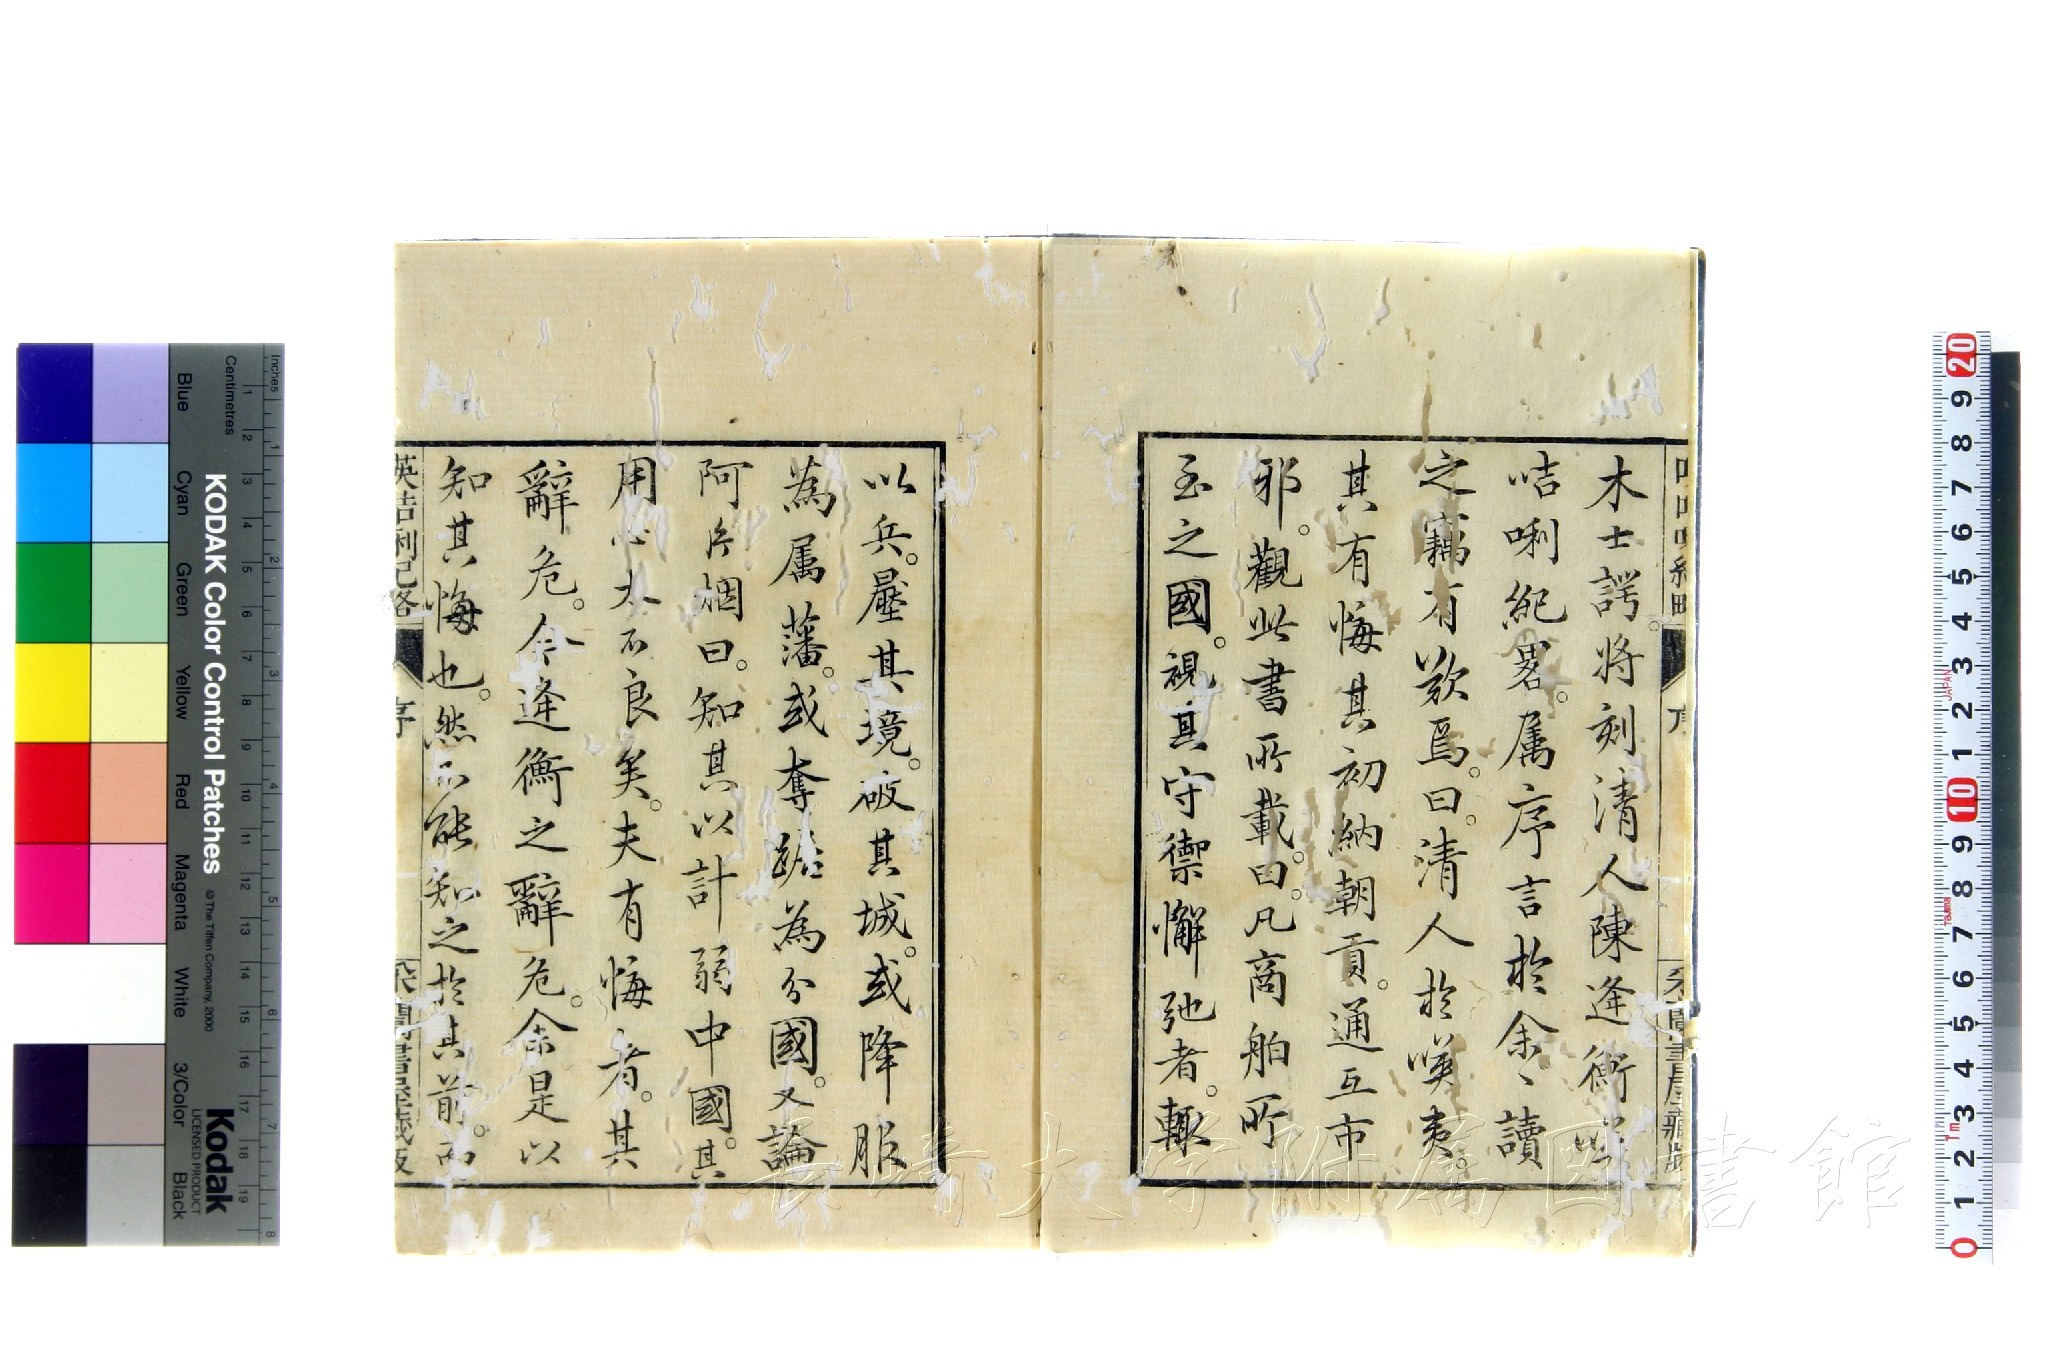 木士諤。將刻清人陳逢衡𠸄
咭唎紀畧。属序言於余〻讀
之竊有歎焉。曰。清人於𠸄夷。
其有悔其初納朝貢。通互市
邪。觀此書所載。曰。凡商舶所
至之國。視其守禦懈弛者。輙
以兵。壓其境。破其城。或降服
為属藩。或奪踞為分國。又論
阿片烟曰。知其以計弱中國。其
用心太不良矣。夫有悔者。其
辭危。今逢衡之辭危。余是以
知其悔也。然不能知之於其前。而
序
長崎大学附属図書館
KODAK Color Control Patches
© The Tiffen Company, 2000
Kodak
LICENSED PRODUCT
Inches
1 2 3 4 5 6 7 8
Centimetres
1 2 3 4 5 6 7 8 9 10 11 12 13 14 15 16 17 18 19
Blue
Cyan
Green
Yellow
Red
Magenta
White
3/Color
Black
0 1 2 3 4 5 6 7 8 9 10 1 2 3 4 5 6 7 8 9 20
1m
JAPAN